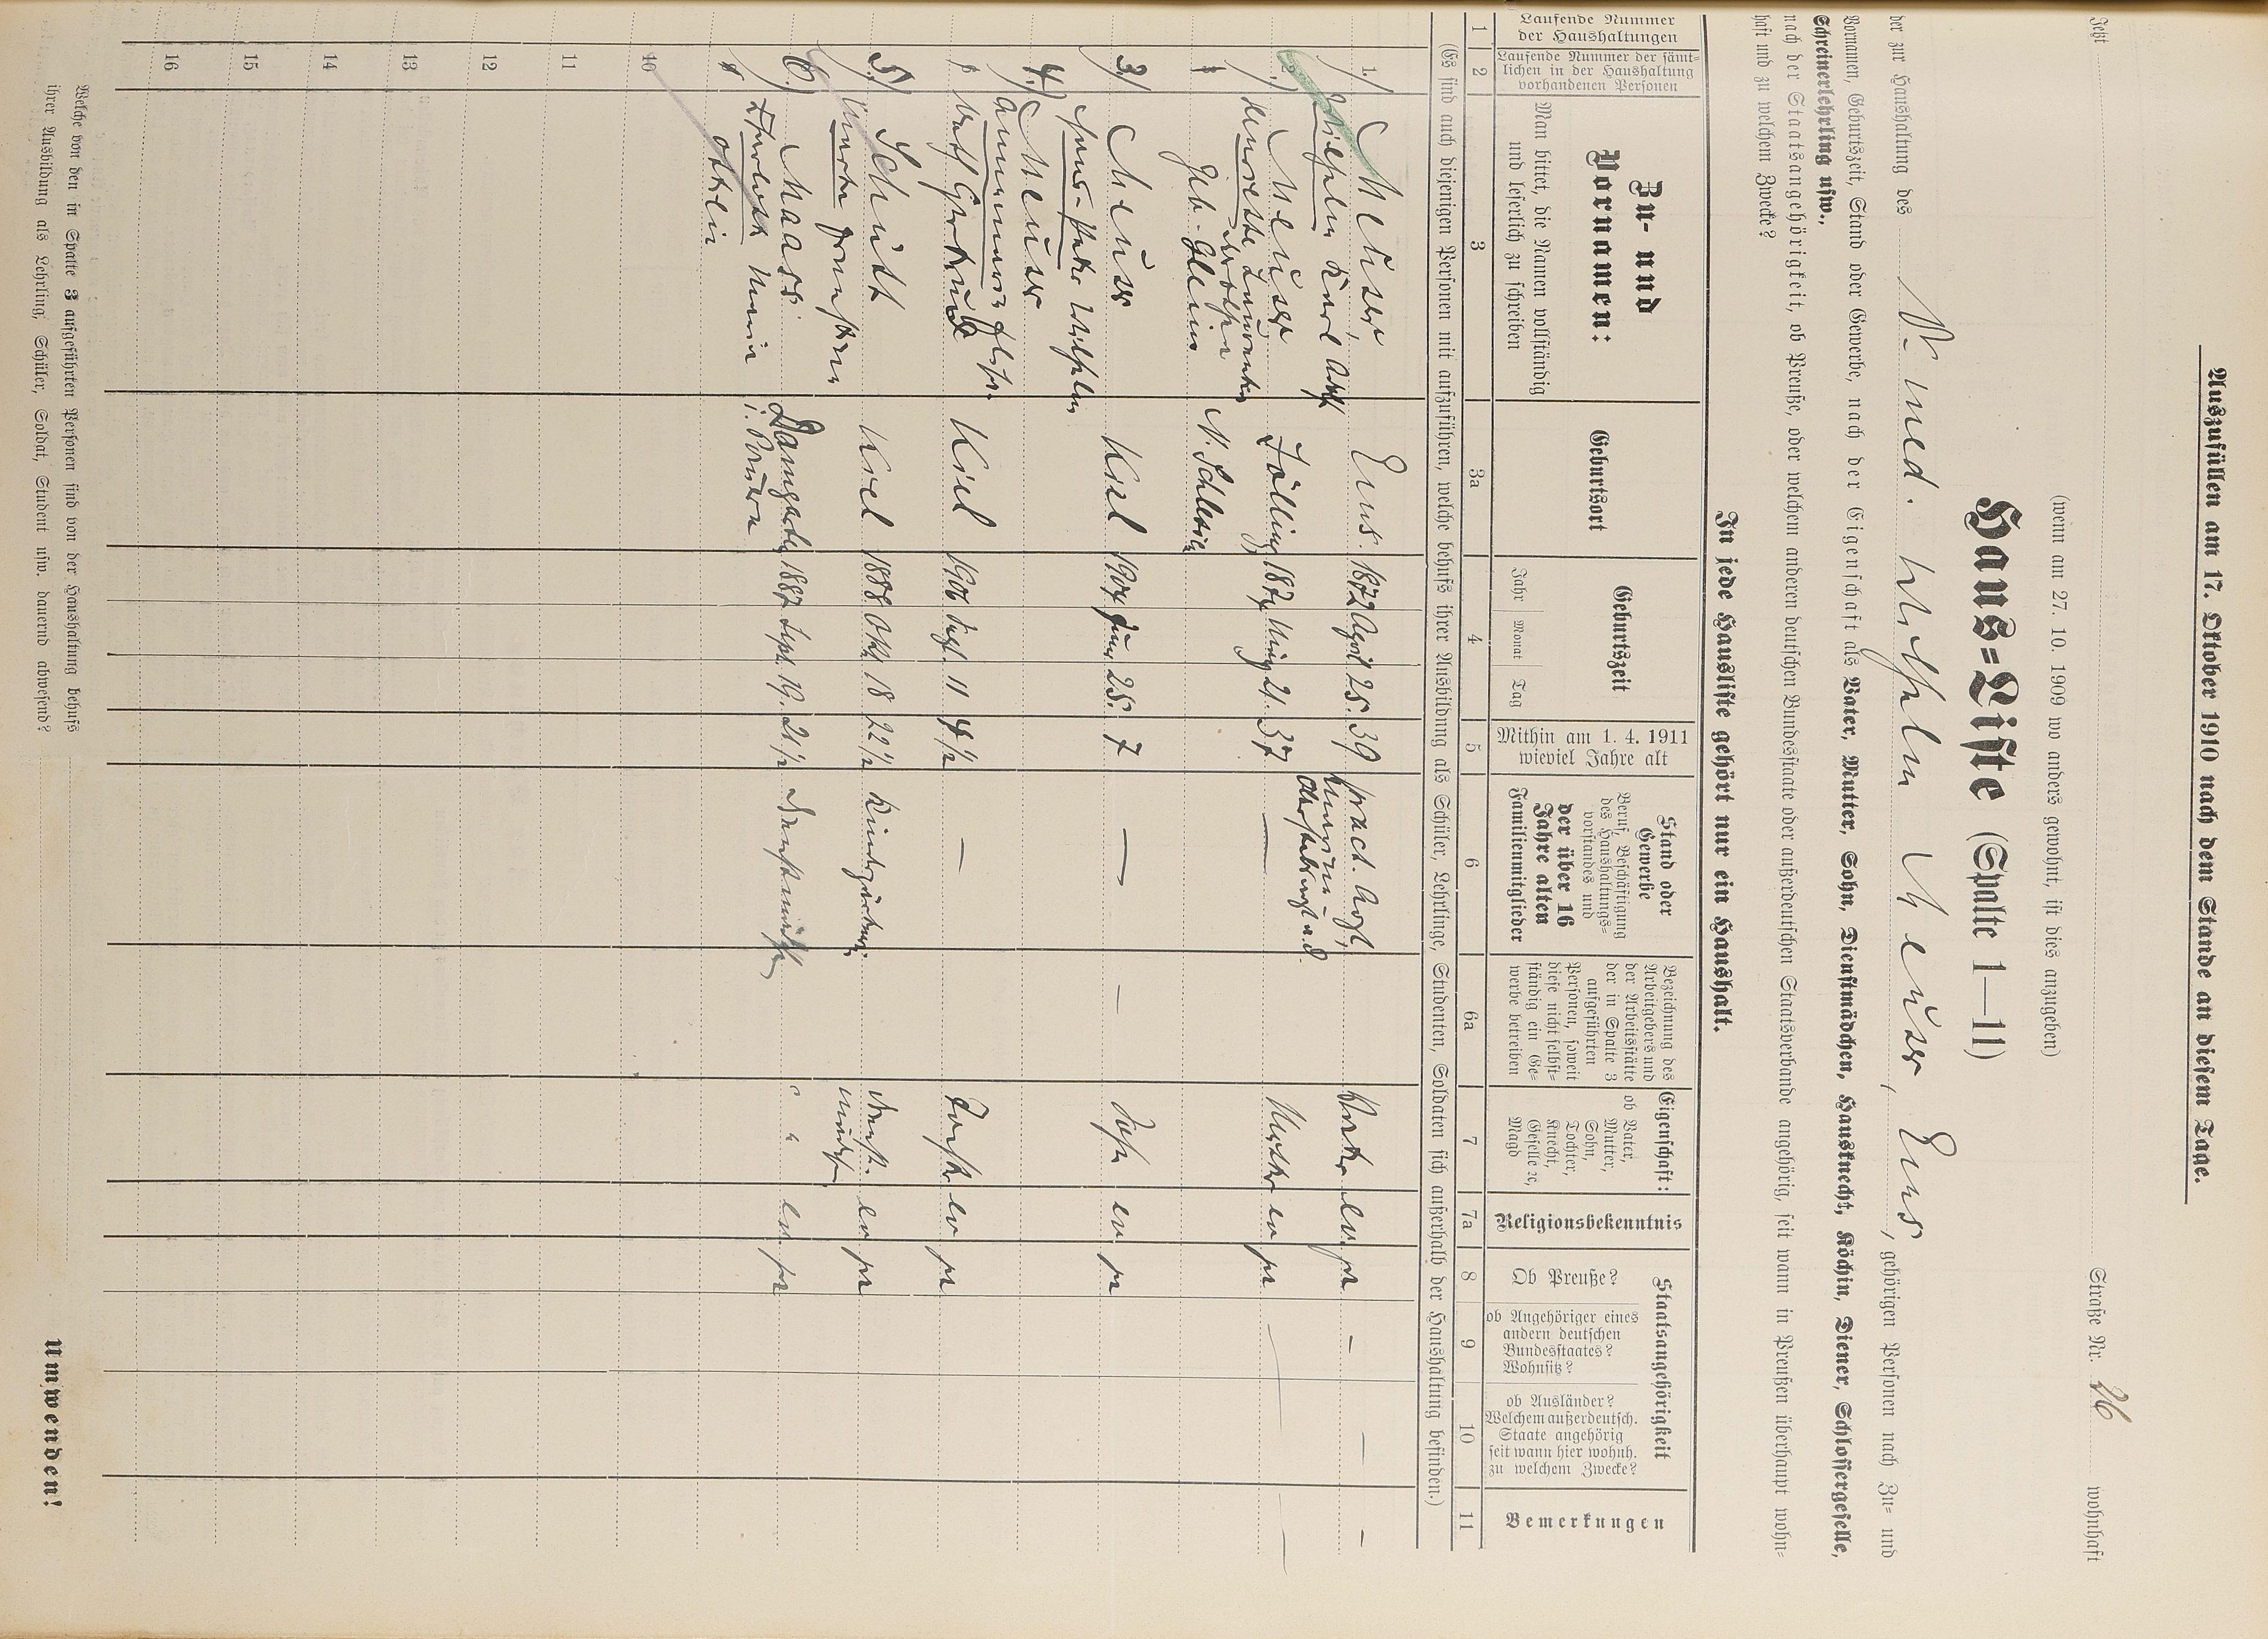 Auszufüllen am 17. Oktober 1910 nach dem Stande an diesem Tage.
Jetzt Straße Nr. 26 wohnhaft
(wenn am 27. 10. 1909 wo anders gewohnt, ist dies anzugeben)
Haus=Liste (Spalte 1—11)
der zur Haushaltung des Dr med. Wilhelm Meuser, Ems, gehörigen Personen nach Zu= und
Vornamen, Geburtszeit, Stand oder Gewerbe, nach der Eigenschaft als Vater, Mutter, Sohn, Dienstmädchen, Hausknecht, Köchin, Diener, Schlossergeselle,
Schreinerlehrling usw.,
nach der Staatsangehörigkeit, ob Preuße, oder welchem anderen deutschen Bundesstaate oder außerdeutschen Staatsverbande angehörig, seit wann in Preußen überhaupt wohn=
haft und zu welchem Zwecke?
In jede Hausliste gehört nur ein Haushalt.
Laufende Nummer
der Haushaltungen
Laufende Nummer der sämt=
lichen in der Haushaltung
vorhandenen Personen
Zu- und
Vornamen:
Man bittet, die Namen vollständig
und leserlich zu schreiben
Geburtsort
Geburtszeit
Jahr Monat Tag
Mithin am 1. 4. 1911
wieviel Jahre alt
Stand oder
Gewerbe
Beruf, Beschäftigung
des Haushaltungs=
vorstandes und
der über 16
Jahre alten
Familienmitglieder
Bezeichnung des
Arbeitgebers und
der Arbeitsstätte
der in Spalte 3
aufgeführten
Personen, soweit
diese nicht selbst=
ständig ein Ge=
werbe betreiben
Eigenschaft:
ob Vater,
Mutter,
Sohn,
Tochter,
Knecht,
Geselle ec,
Magd
Religionsbekenntnis
Staatsangehörigkeit
Ob Preuße?
ob Angehöriger eines
andern deutschen
Bundesstaates?
Wohnsitz?
ob Ausländer?
Welchem außerdeutsch.
Staate angehörig
seit wann hier wohnh.
zu welchem Zwecke?
Bemerkungen
1 2 3 3a 4 5 6 6a 7 7a 8 9 10 11
(Es sind auch diejenigen Personen mit aufzuführen, welche behufs ihrer Ausbildung als Schüler, Lehrlinge, Studenten, Soldaten sich außerhalb der Haushaltung befinden.)
1. Meuser, Ems. 1872 April 25. 39 pract. Arzt, Vater ev. pr — — —
Wilhelm Karl Adolf
2 Meuser Mutter ev pr
Henriette 1874 21. 37 —
geb. N. Schlesien
3. Meuser Kiel 1904 Juni 25. 7 — — Sohn ev pr
Wilhelm
4. Meuser
Annemarie
Gertrud Kiel 1906 11 4 1/2 — Tochter ev pr
5. Schütt Kiel 1888 Okt. 18 22 1/2 Kindergärtnerin Dienst- ev pr
Martha mädchen
6. Maass 1887 Sept. 19. 21 1/2 Dienstmädchen " " ev pr
Charlotte Maria
Ottilie
10
11
12
13
14
15
16
Welche von den in Spalte 3 aufgeführten Personen sind von der Haushaltung behufs
ihrer Ausbildung als Lehrling, Schüler, Soldat, Student usw. dauernd abwesend?
Umwenden!